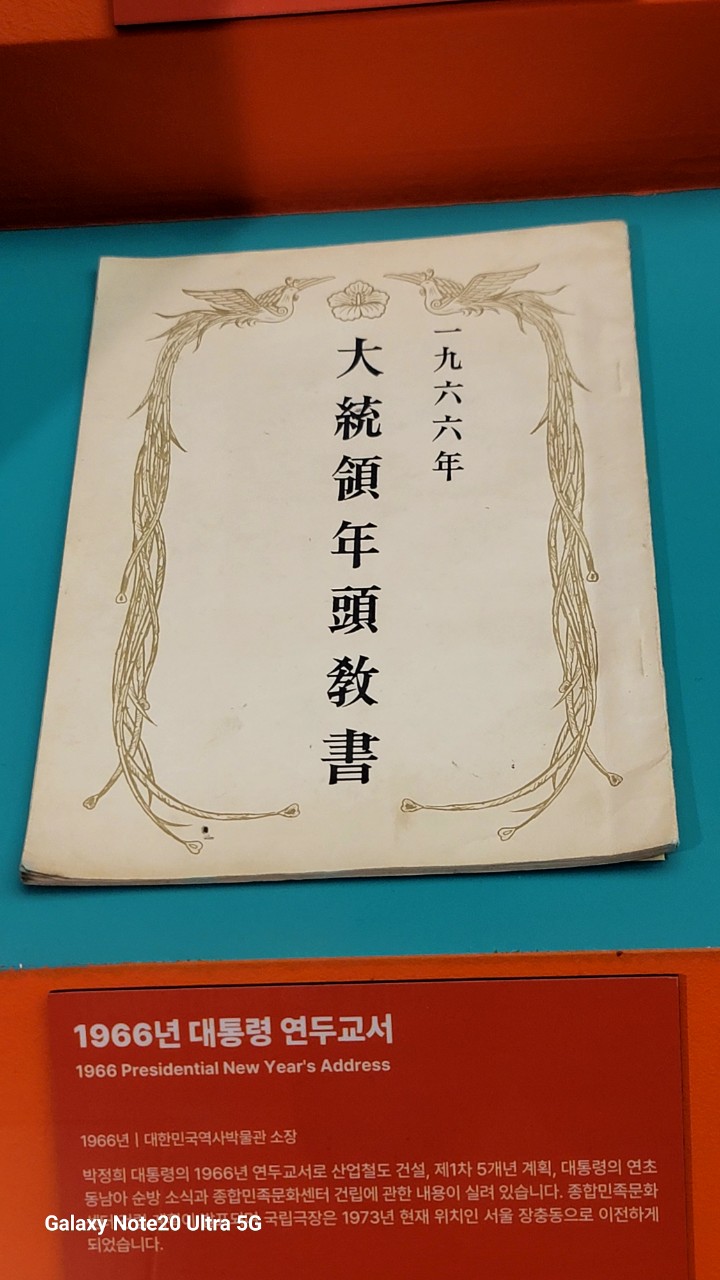 一九六六年
大統領年頭敎書
1966년 대통령 연두교서
1966 Presidential New Year's Address
1966년 | 대한민국역사박물관 소장
박정희 대통령의 1966년 연두교서로 산업철도 건설, 제1차 5개년 계획, 대통령의 연초
동남아 순방 소식과 종합민족문화센터 건립에 관한 내용이 실려 있습니다. 종합민족문화
국립극장은 1973년 현재 위치인 서울 장충동으로 이전하게
되었습니다.
Galaxy Note20 Ultra 5G